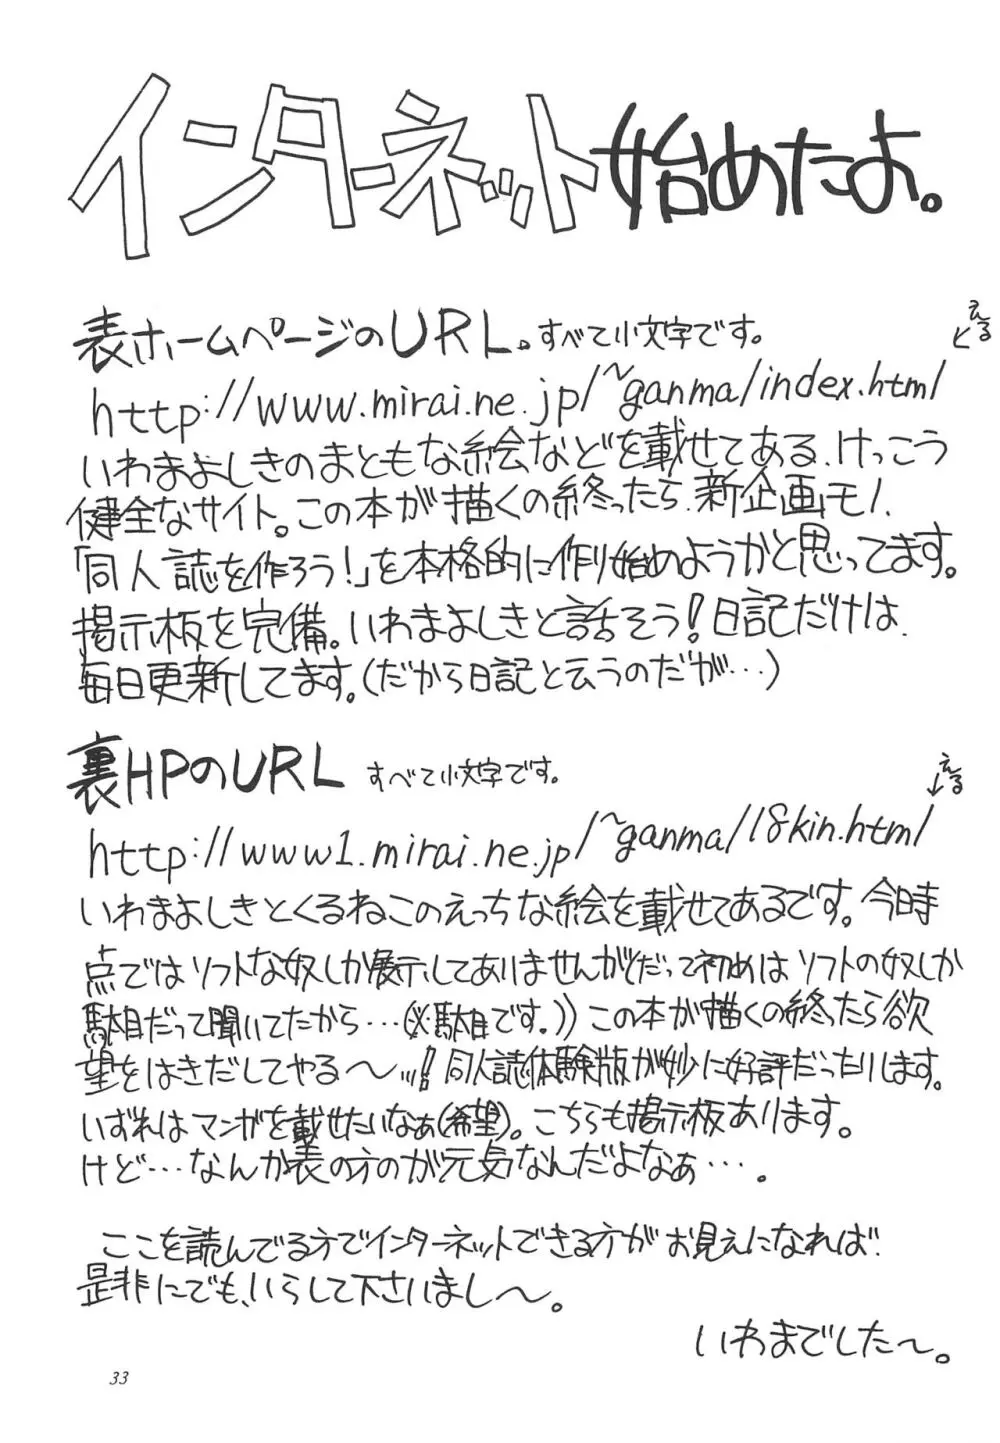 インターネット始めたよ。
表ホームページのURL。すべて小文字です。
える
http://www.mirai.ne.jp/~ganma/index.html
いわまよしきのまともな絵などを載せてある、けっこう
健全なサイト。この本が描くの終ったら、新企画モノ、
「同人誌を作ろう!」を本格的に作り始めようかと思ってます。
掲示板を完備。いわまよしきと話そう!日記だけは、
毎日更新してます。(だから日記と云うのだが…)
裏HPのURL すべて小文字です。
える
http://www1.mirai.ne.jp/~ganma/18kin.html
いわまよしきとくるねこのえっちな絵を載せてあるです。今日時
点ではソフトな奴しか展示してありませんが(だって初めはソフトの奴しか
駄目だって聞いてたから…(※駄目です。))この本が描くの終ったら欲
望をはきだしてやる〜…!!同人誌体験版が妙に好評だったりします。
いずれはマンガを載せたいなぁ(希望)。こちらも掲示板あります。
けど…なんか表の方のが元気なんだよなぁ…。
ここを読んでる方でインターネットできる方がお見えになれば、
是非にでも、いらして下さいまし〜。
いわまでした〜。
33